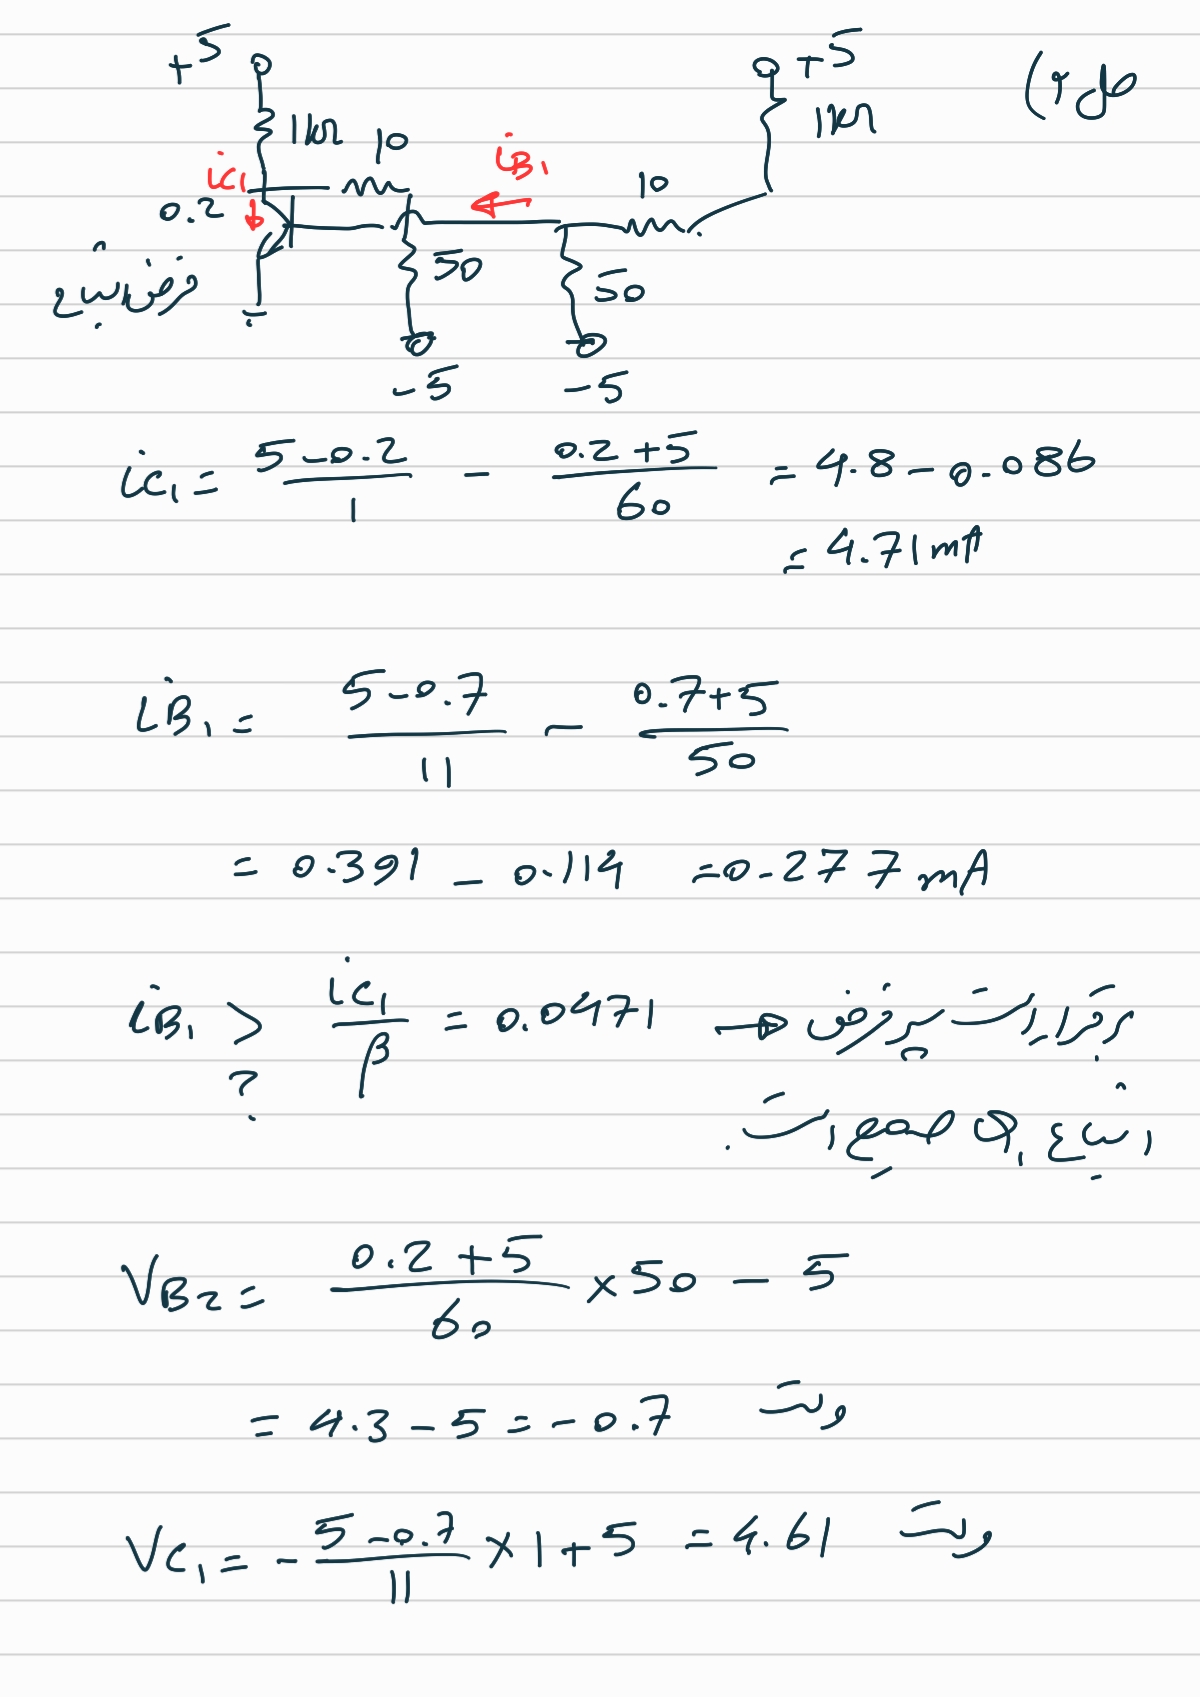 حل ۲)
+5 +5
1kΩ 10 1kΩ
ic₁ iB₁ 10
0.2
فرض اشباع 50 50
-5 -5
ic₁ = (5-0.2)/1 - (0.2+5)/60 = 4.8-0.086
= 4.71 mA
iB₁ = (5-0.7)/11 - (0.7+5)/50
= 0.391 - 0.114 = 0.277 mA
iB₁ > ic₁/β = 0.0471 → برقرار است پس فرض
? اشباع Q₁ صحیح است.
VB2 = (0.2+5)/60 ×50 - 5
= 4.3-5 = -0.7 ولت
Vc₁ = - (5-0.7)/11 ×1+5 = 4.61 ولت